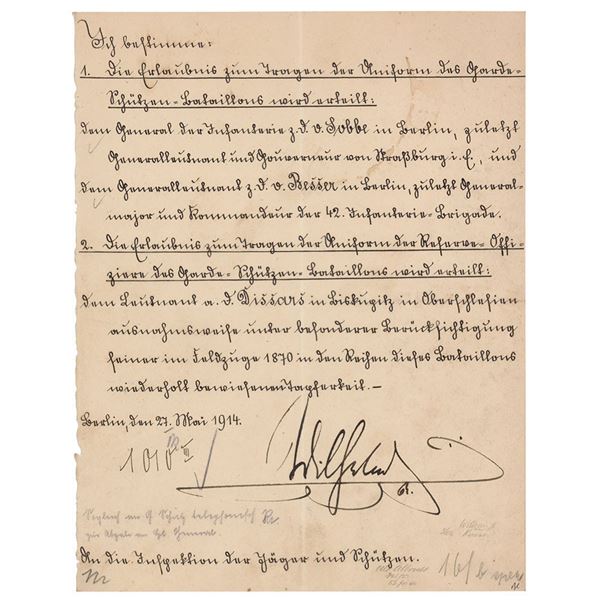 Ich bestimme:
1. Die Erlaubnis zum Tragen der Uniform des Garde-
Schützen-Bataillons wird erteilt:
dem General der Infanterie z. D. v. Sobbe in Berlin, zuletzt
Generalleutnant und Gouverneur von Straßburg i. E., und
dem Generalleutnant z. D. v. Besser in Berlin, zuletzt General-
major und Kommandeur der 42. Infanterie-Brigade.
2. Die Erlaubnis zum Tragen der Uniform der Reserve-Offi-
ziere des Garde-Schützen-Bataillons wird erteilt:
dem Leutnant a. D. Dissars in Biskupitz in Oberschlesien
ausnahmsweise unter besonderer Berücksichtigung
seiner im Feldzuge 1870 in den Reihen dieses Bataillons
wiederholt bewiesenen Tapferkeit.—
Berlin, den 27. Mai 1914.
Wilhelm
An die Inspektion der Jäger und Schützen.